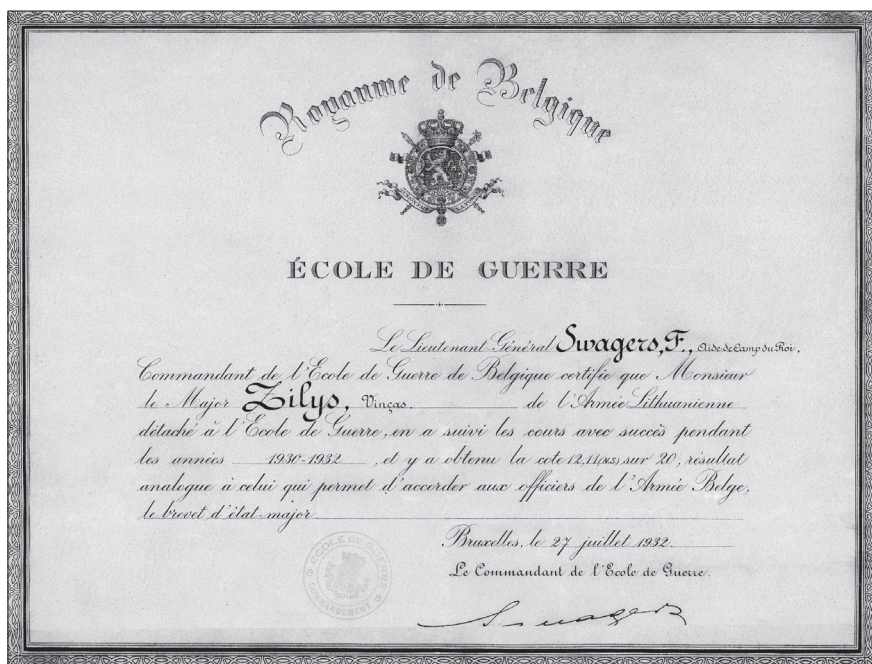 Royaume de Belgique
ÉCOLE DE GUERRE
Le Lieutenant Général Swagers, F., Aide de Camp du Roi,
Commandant de l'Ecole de Guerre de Belgique certifie que Monsieur
le Major Zilys, Vinças. de l'Armée Lithuanienne
détaché à l'Ecole de Guerre, en a suivi les cours avec succès pendant
les années 1930-1932, et y a obtenu la cote 12,11 (N.S) sur 20, résultat
analogue à celui qui permet d'accorder aux officiers de l'Armée Belge,
le brevet d'état-major
Bruxelles, le 27 juillet 1932.
Le Commandant de l'Ecole de Guerre.
ECOLE DE GUERRE
COMMANDEMENT
Swagers